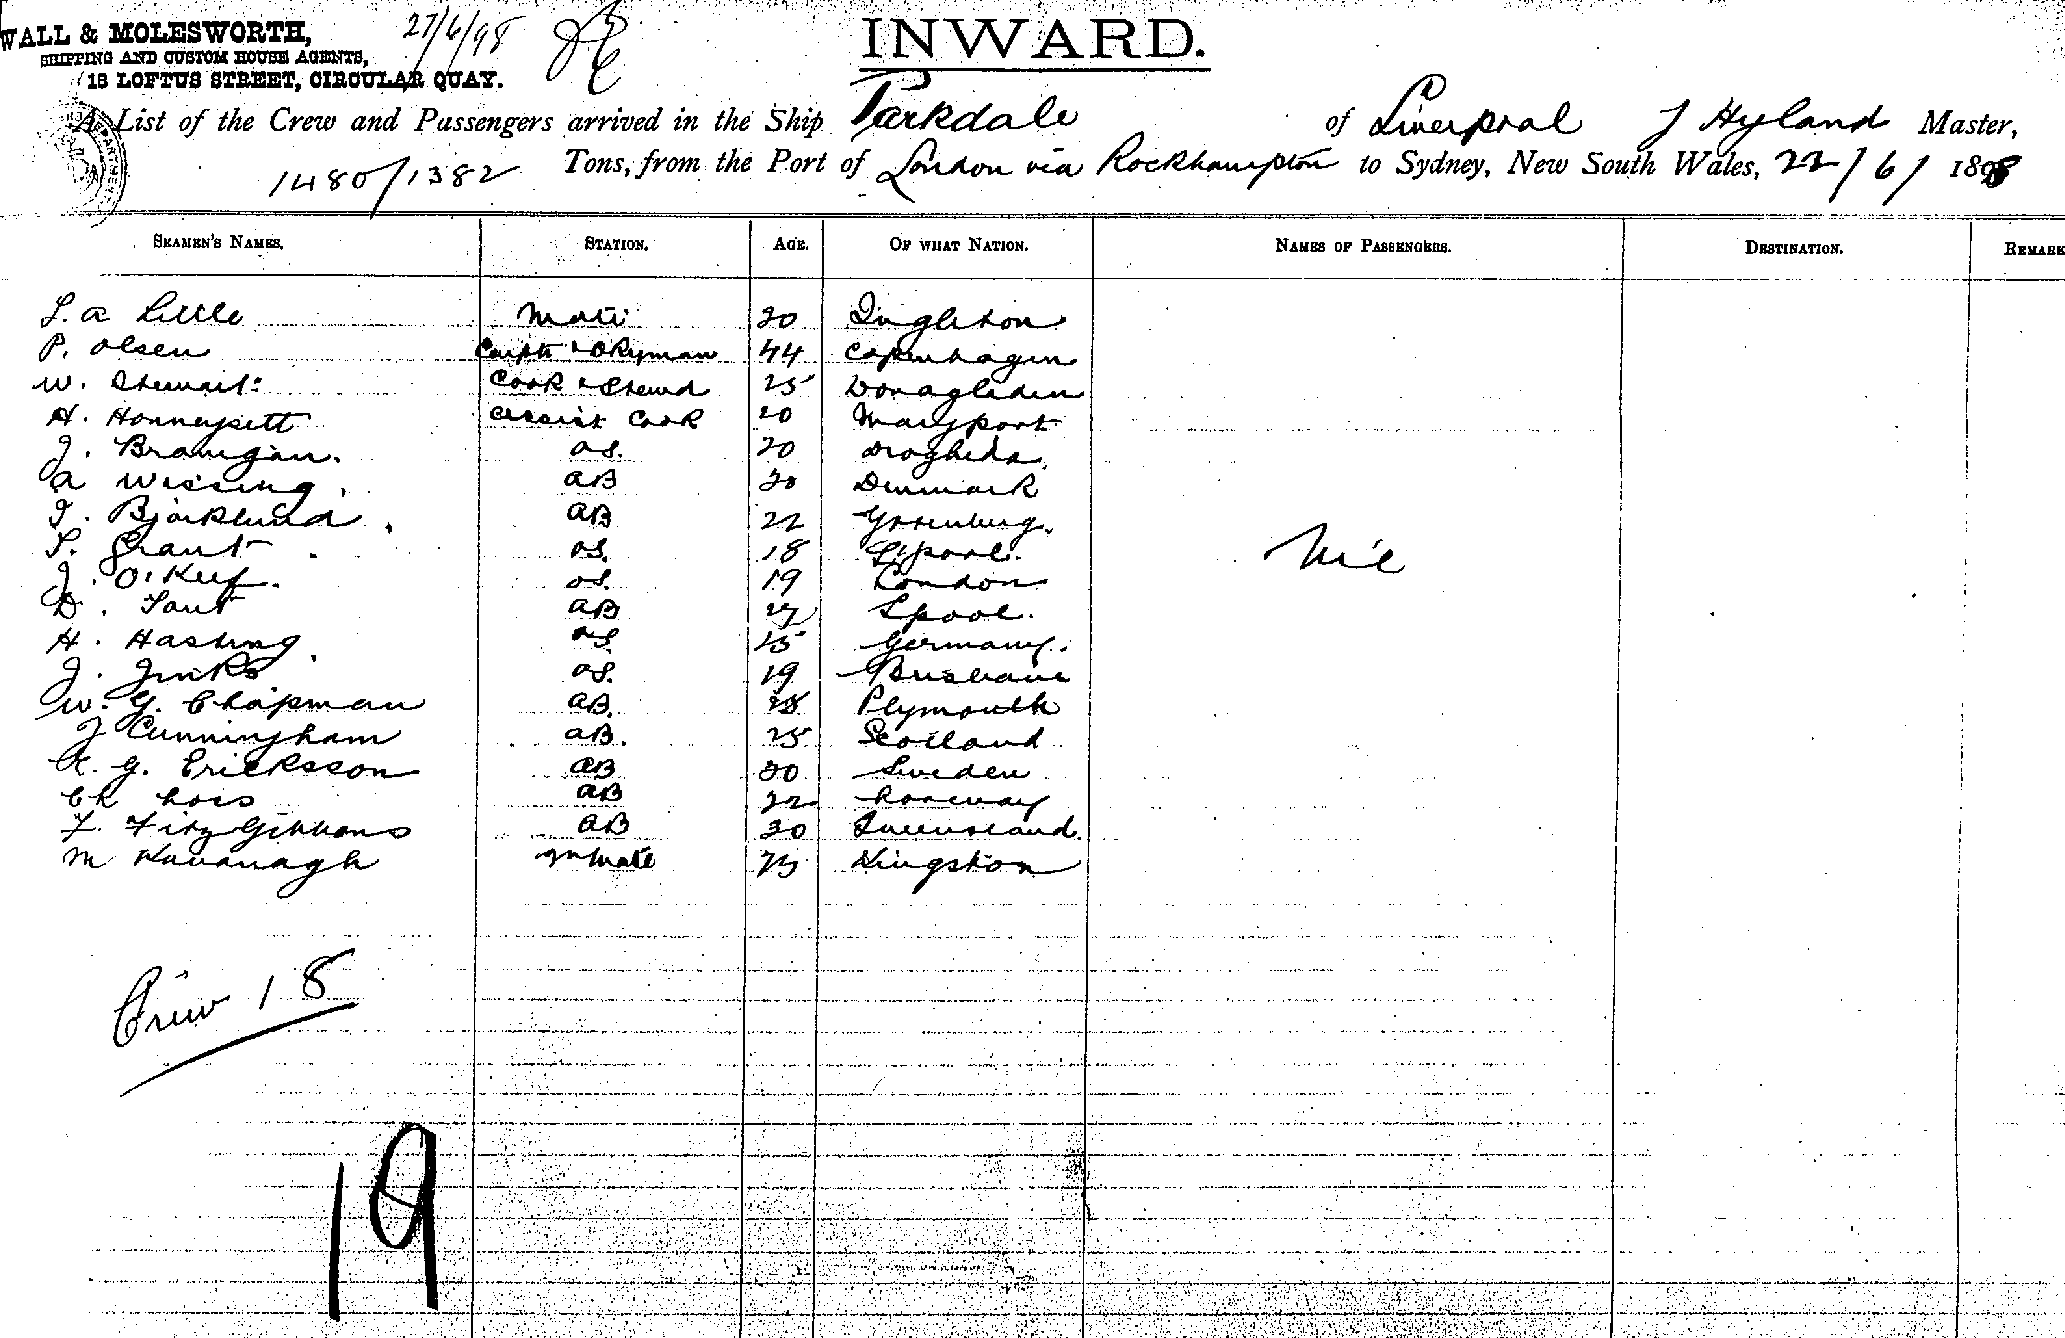 WALL & MOLESWORTH, 27/6/98
SHIPPING AND CUSTOM HOUSE AGENTS,
18 LOFTUS STREET, CIRCULAR QUAY.
INWARD.
A List of the Crew and Passengers arrived in the Ship Parkdale of Liverpool J Hyland Master,
1480/1382 Tons, from the Port of London via Rockhampton to Sydney, New South Wales, 22/6/ 1898
SEAMEN'S NAMES. STATION. AGE. OF WHAT NATION. NAMES OF PASSENGERS. DESTINATION. REMARK
L. A Little Mate 30 Ingleton
P. Olsen 44 Copenhagen
W. Stewart Cook & Stewd 25
H. Honneysett Assist Cook 20 Maryport
J. Branigan. OS. 20 Drogheda
A Wissing. AB 30 Denmark
Bjorklund AB 22
Grant OS. 18 L'pool. Nil
J. O'Keef. OS. 19 London
D. AB 27 Lpool.
H. Hasting OS. Germany.
J. Jinks OS. 19 Brisbane
W. G. Chapman AB. Plymouth
J Cunningham AB. 25 Scotland
G. Ericksson AB 30 Sweden
Ch Lois AB 22 Norway
F. FitzGibbons AB 30 Queensland.
M Kavanagh 2n Mate Kingston
Crew 18
19